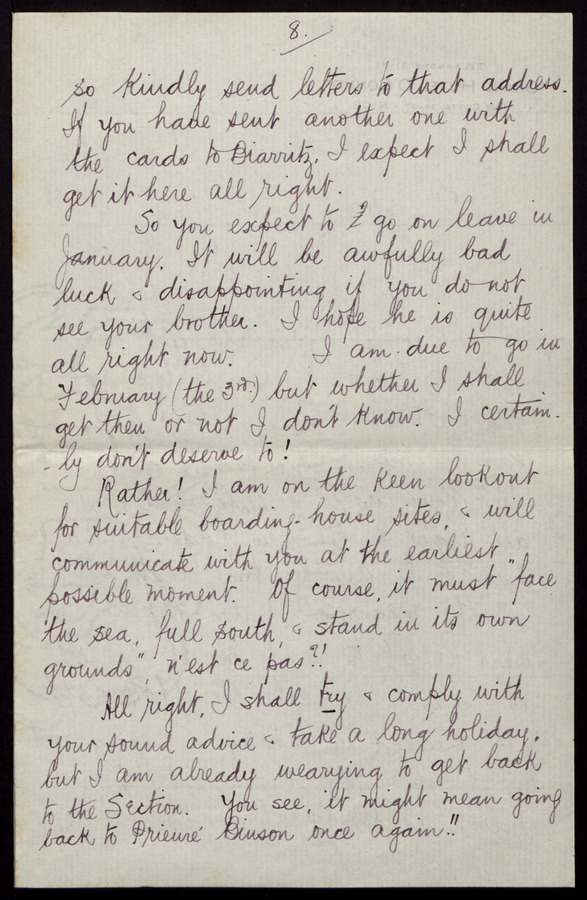 8.
so Kindly send letters to that address.
If you have sent another one with
the cards to Biarritz, I expect I shall
get it here all right.
So you expect to go on leave in
January. It will be awfully bad
luck & disappointing if you do not
see your brother. I hope he is quite
all right now. I am due to go in
February (the 3rd.) but whether I shall
get then or not I don't know. I certain-
-ly don't deserve to!
Rather! I am on the keen lookout
for suitable boarding-house sites, & will
communicate with you at the earliest
possible moment. Of course, it must "face
the sea, full south, & stand in its own
grounds", n'est ce pas?!
All right, I shall try & comply with
your sound advice & take a long holiday,
but I am already wearying to get back
to the Section. You see, it might mean going
back to Prieuré Binson once again!!